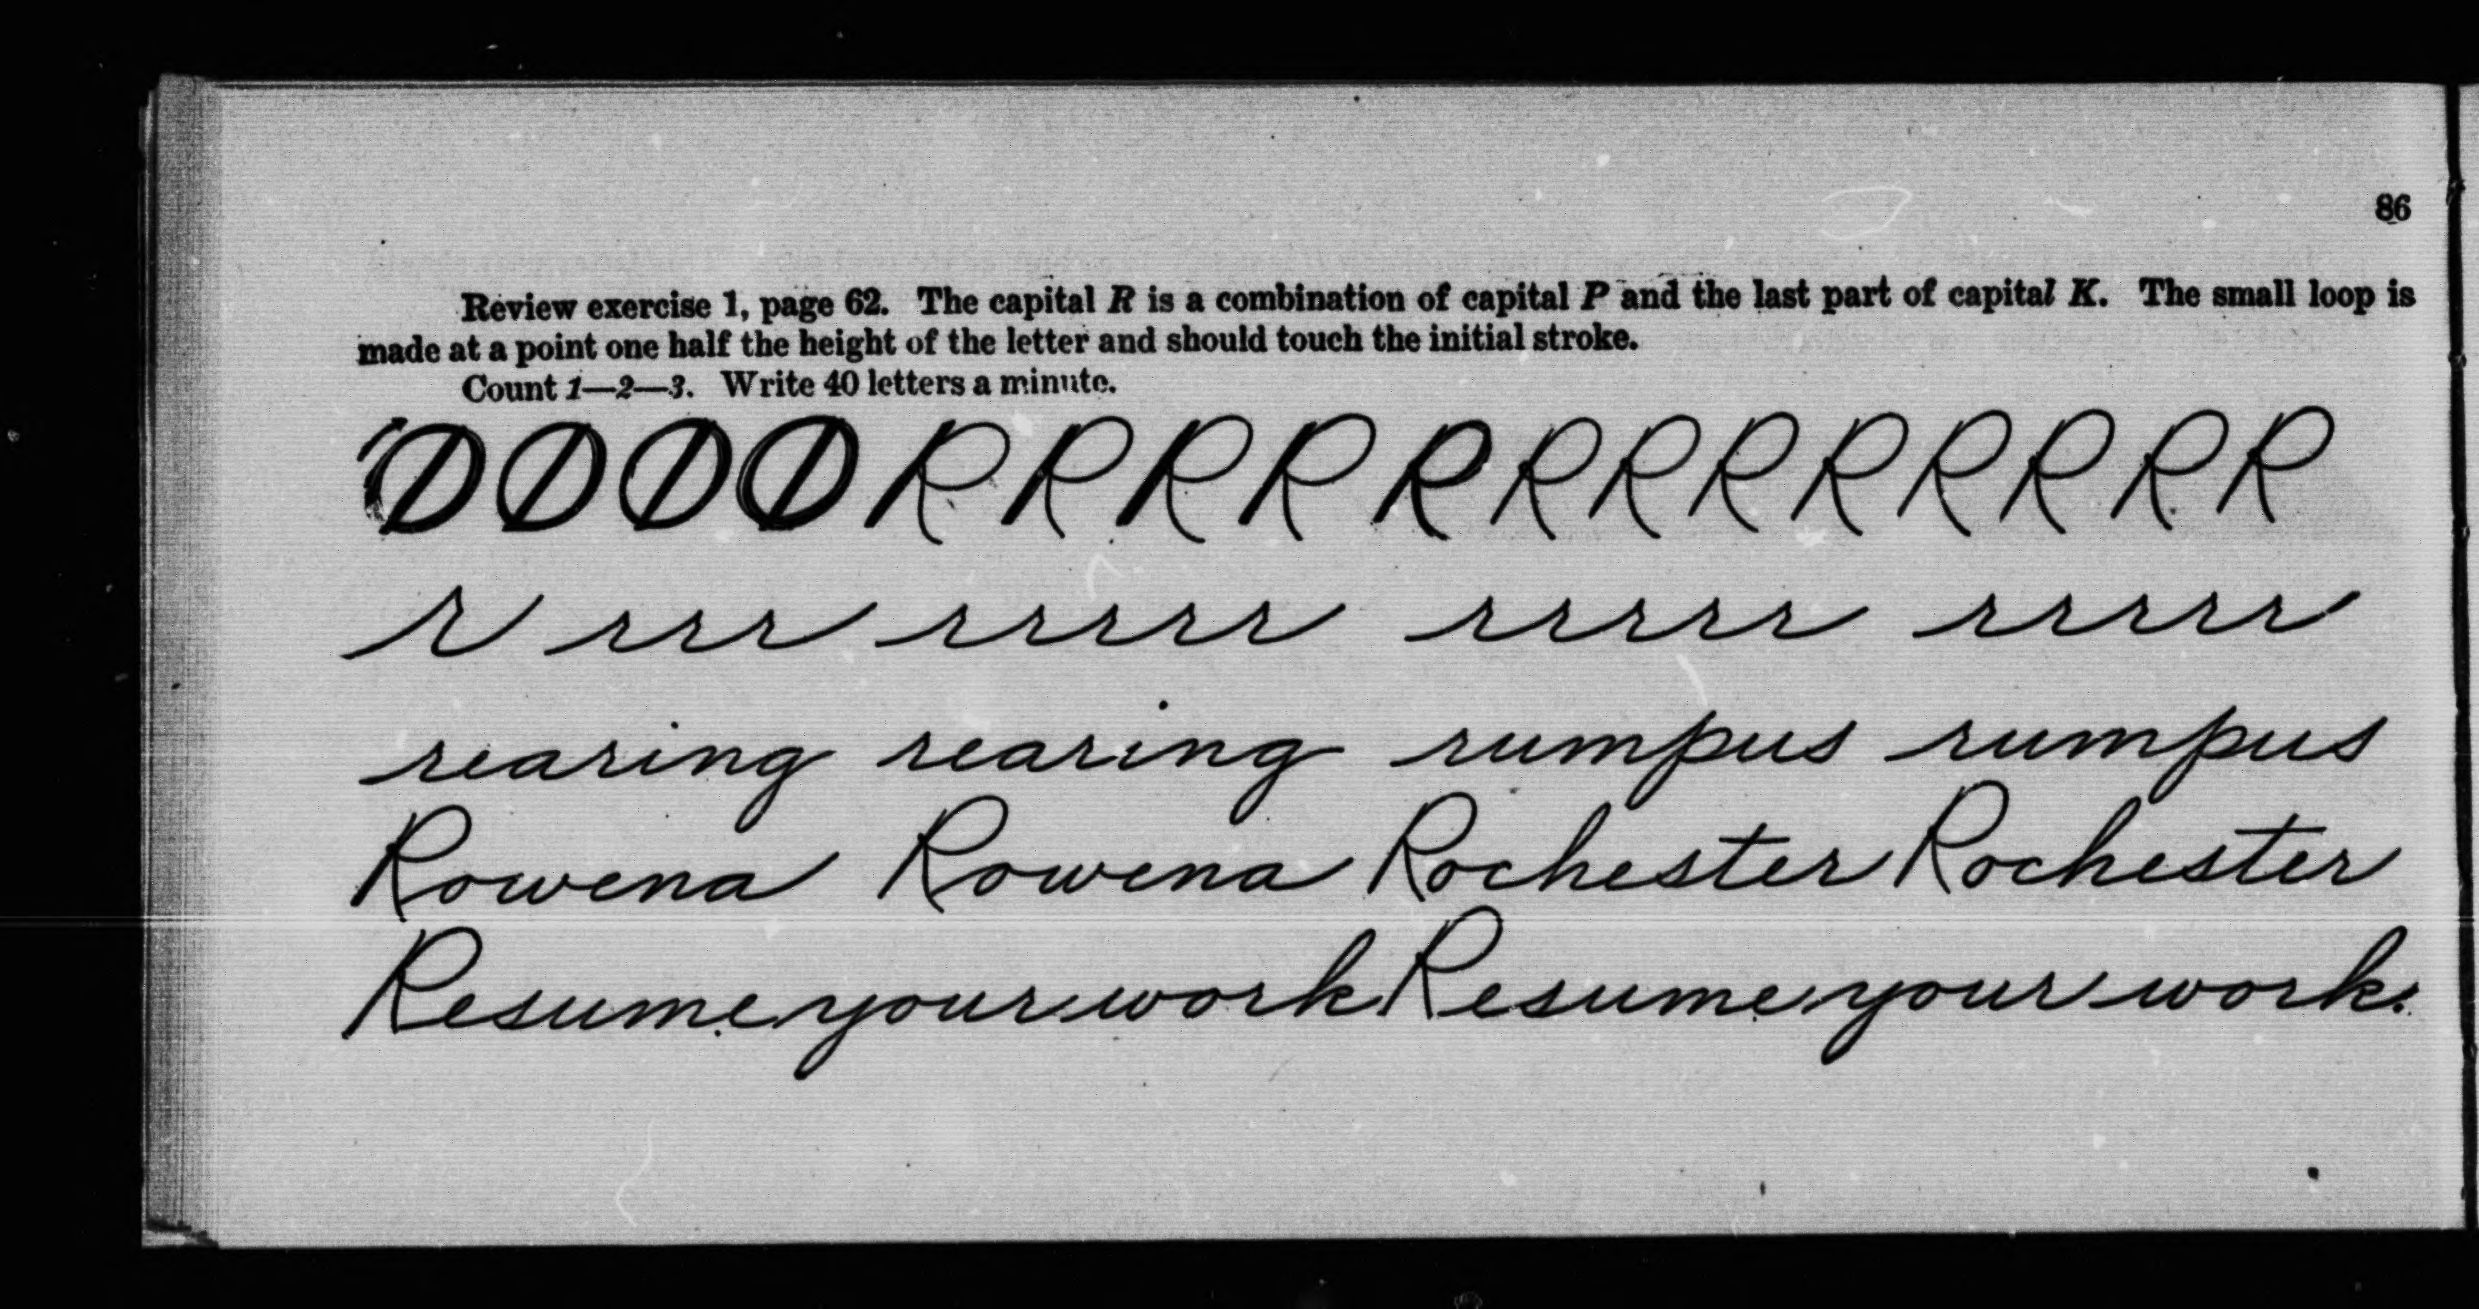 86
Review exercise 1, page 62. The capital R is a combination of capital P and the last part of capital K. The small loop is
made at a point one half the height of the letter and should touch the initial stroke.
Count 1—2—3. Write 40 letters a minute.
R R R R R R R R R R R R R
r rrr rrrrr rrrrr rrrrr
rearing rearing rumpus rumpus
Rowena Rowena Rochester Rochester
Resume your work Resume your work.